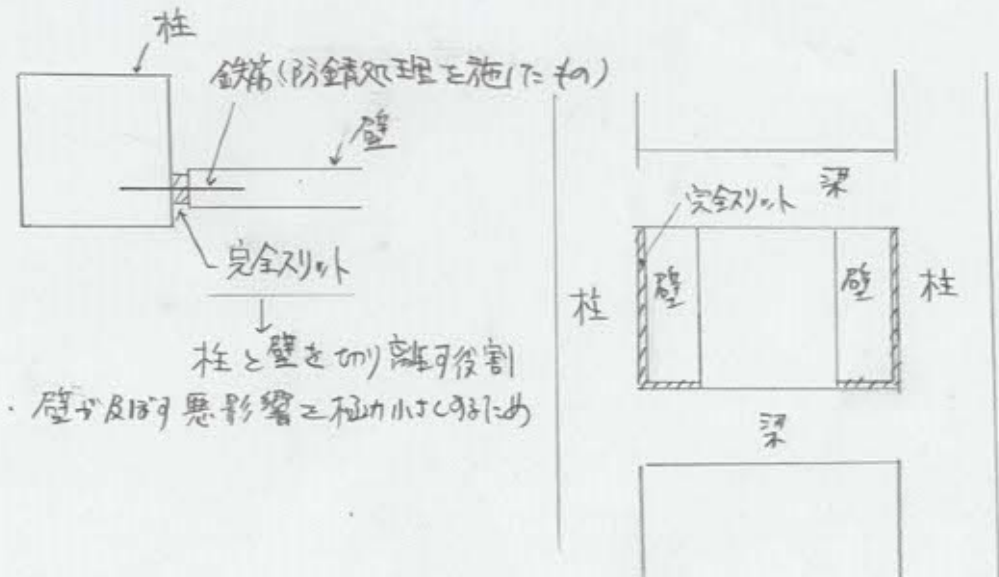 柱
鉄筋(防錆処理を施したもの)
壁
完全スリット
柱と壁を切り離す役割
・壁が及ぼす悪影響を極力小さくするため
梁
完全スリット
柱
壁
壁
柱
梁